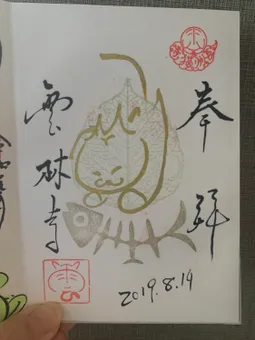 奉拝
雲林寺
2019.8.19